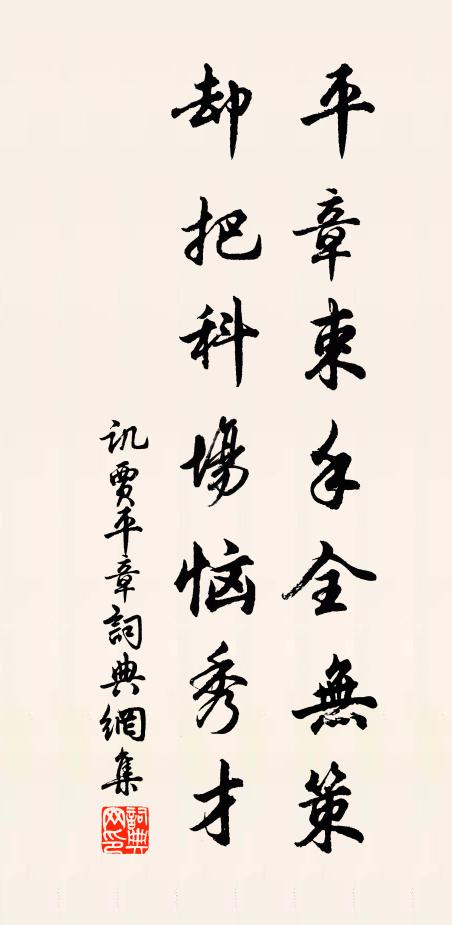 平章束手全無策
却把科場惱秀才
讥賈平章詞典網集
詞典网印